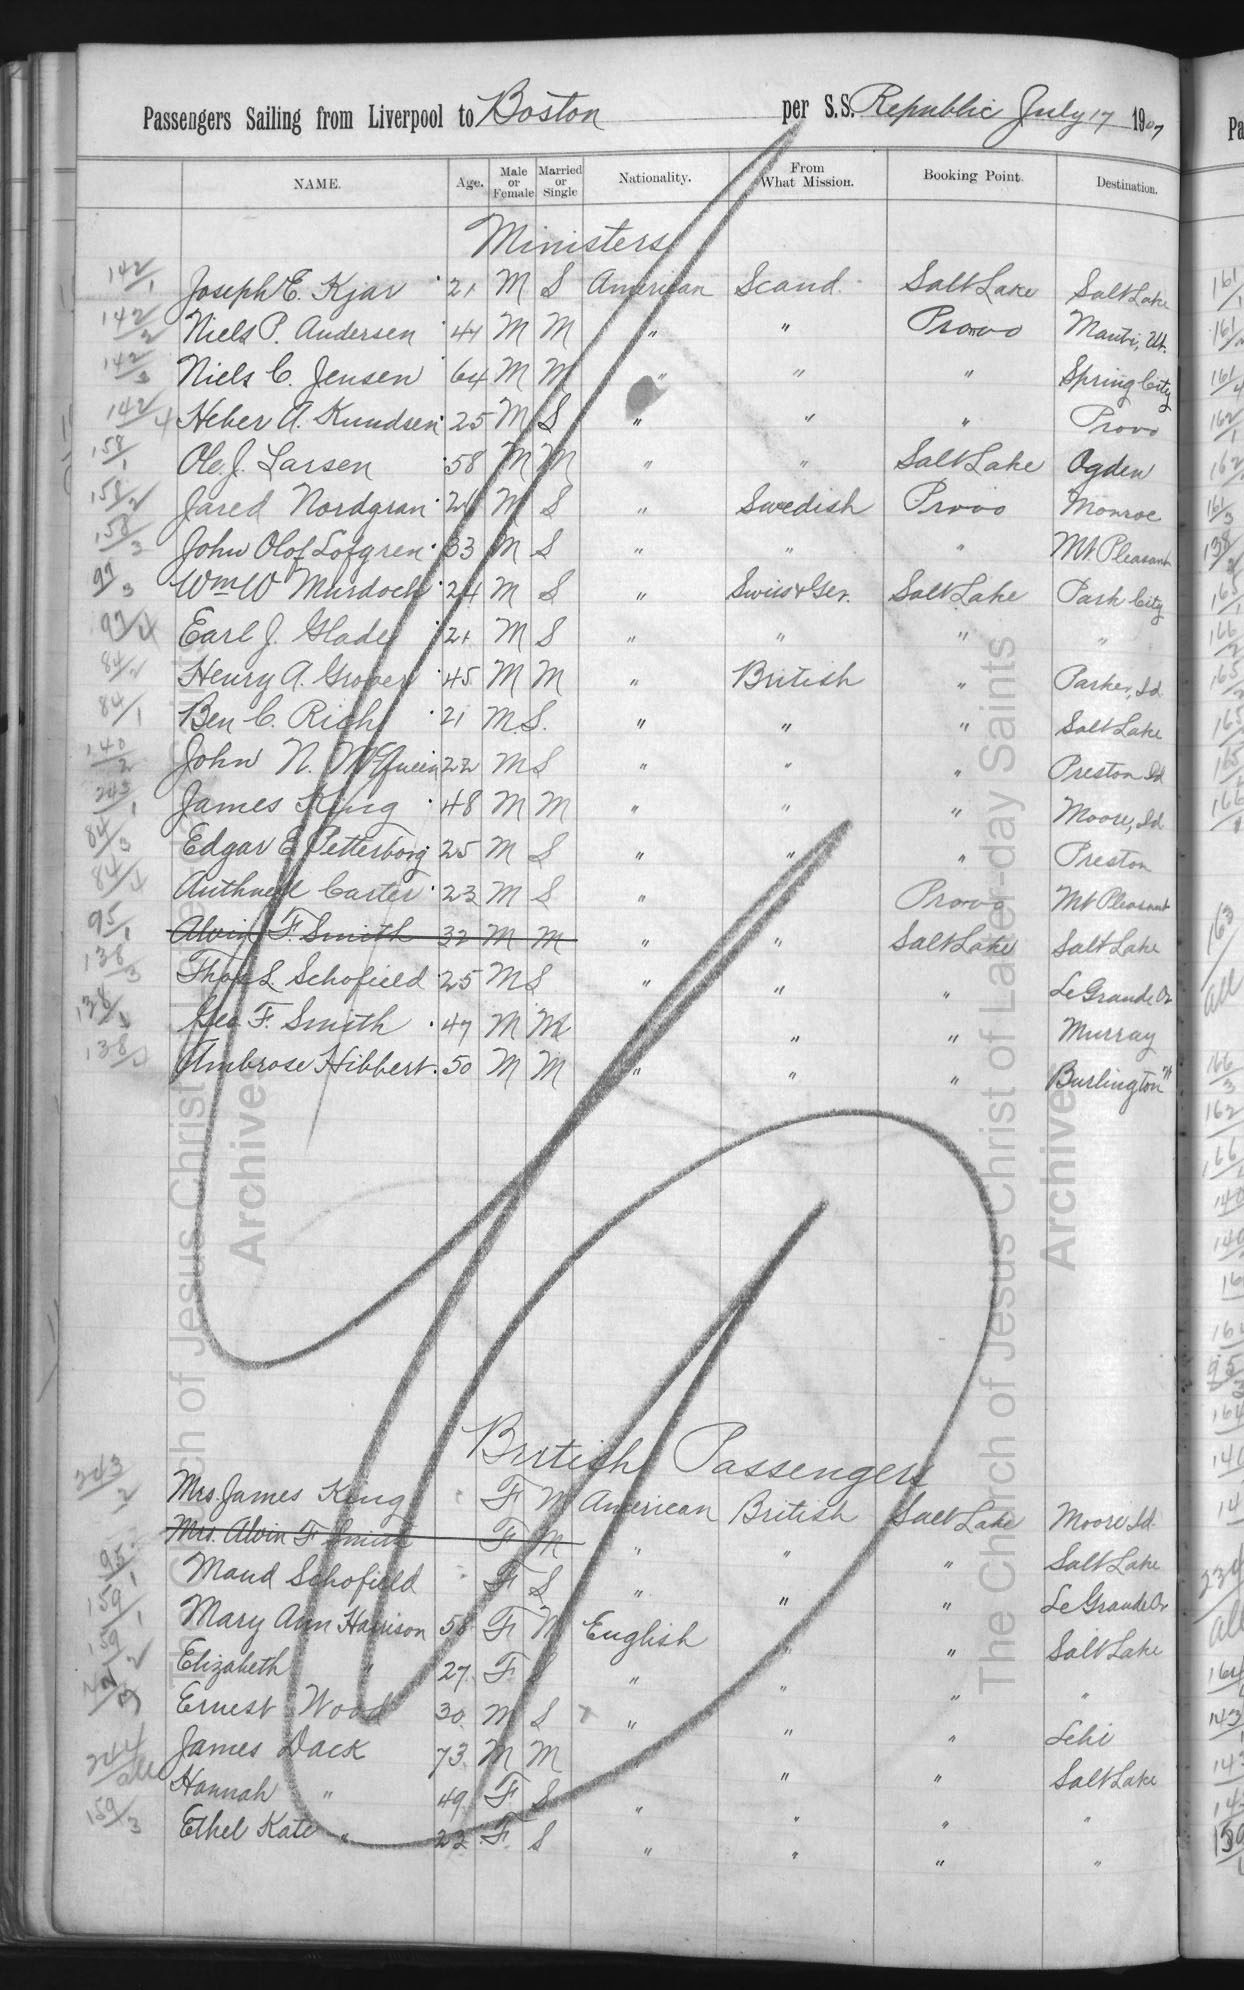 Passengers Sailing from Liverpool to Boston per S.S. Republic July 17 1907
NAME. Age. Male or Female Married or Single Nationality. From What Mission. Booking Point. Destination.
Ministers
142/1 Joseph E. Kjar 21 M S American Scand. Salt Lake Salt Lake
142/2 Niels P. Andersen 44 M M " " Provo Manti, Ut.
142/3 Niels C. Jensen 64 M M " " " Spring City
142/4 Heber A. Knudsen 25 M S " " " Provo
158/1 Ole J. Larsen 58 M M " " Salt Lake Ogden
158/2 Jared Nordgran 26 M S " Swedish Provo Monroe
158/3 John Olof Lofgren 33 M S " " " Mt Pleasant
99/3 Wm W Murdoch 24 M S " Swiss & Ger. Salt Lake Park City
97/4 Earl J. Glade 21 M S " " " "
84/2 Henry A. Grover 45 M M " British " Parker, Id
84/1 Ben C. Rich 21 M S. " " " Salt Lake
140/2 John N. McQueen 22 M S " " " Preston Id
243/1 James King 48 M M " " " Moore, Id
84/3 Edgar E Petterborg 25 M S " " " Preston
84/4 Authnell Carter 23 M S " Provo Mt Pleasant
95/1 Alvin F. Smith 32 M M " " Salt Lake Salt Lake
138/3 Thos L. Schofield 25 M S " " " Le Grande Or
138/1 Geo F. Smith 47 M M " " Murray
138/2 Ambrose Hibbert 50 M M " " " Burlington
British Passengers
243/2 Mrs. James King F M American British Salt Lake Moore Id
Mrs. Alvin F Smith F M " " " Salt Lake
95/1 Maud Schofield F S " " " Le Grande Or
159/1 Mary Ann Harrison 58 F M English " " Salt Lake
159/2 Elizabeth " 27 F S " " " "
Ernest Wood 30 M S " " " Lehi
244/all James Dack 73 M M " " Salt Lake
Hannah " 49 F S " " " "
159/3 Ethel Kate " 22 F S " " " "
The Church of Jesus Christ of Latter-day Saints
Archives
The Church of Jesus Christ of Latter-day Saints
Archives